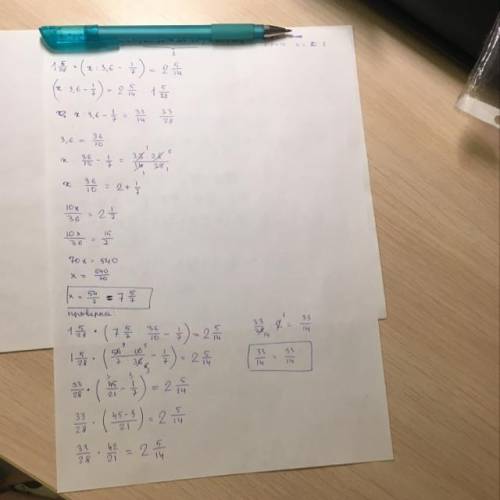 1 5/28 · (x : 3,6 - 1/7) = 2 5/14
(x : 3,6 - 1/7) = 2 5/14 : 1 5/28
x : 3,6 - 1/7 = 33/14 : 33/28
3,6 = 36/10
x : 36/10 - 1/7 = 33/14 · 28/33
x : 36/10 = 2 + 1/7
10x/36 = 2 1/7
10x/36 = 15/7
70x = 540
x = 540/70
x = 54/7 = 7 5/7
проверка
1 5/28 · (7 5/7 : 36/10 - 1/7) = 2 5/14
1 5/28 · (54/7 · 10/36 - 1/7) = 2 5/14
33/28 · (45/21 - 1/7) = 2 5/14
33/28 · (45-3/21) = 2 5/14
33/28 · 42/21 = 2 5/14
33/28 · 2 = 33/14
33/14 = 33/14